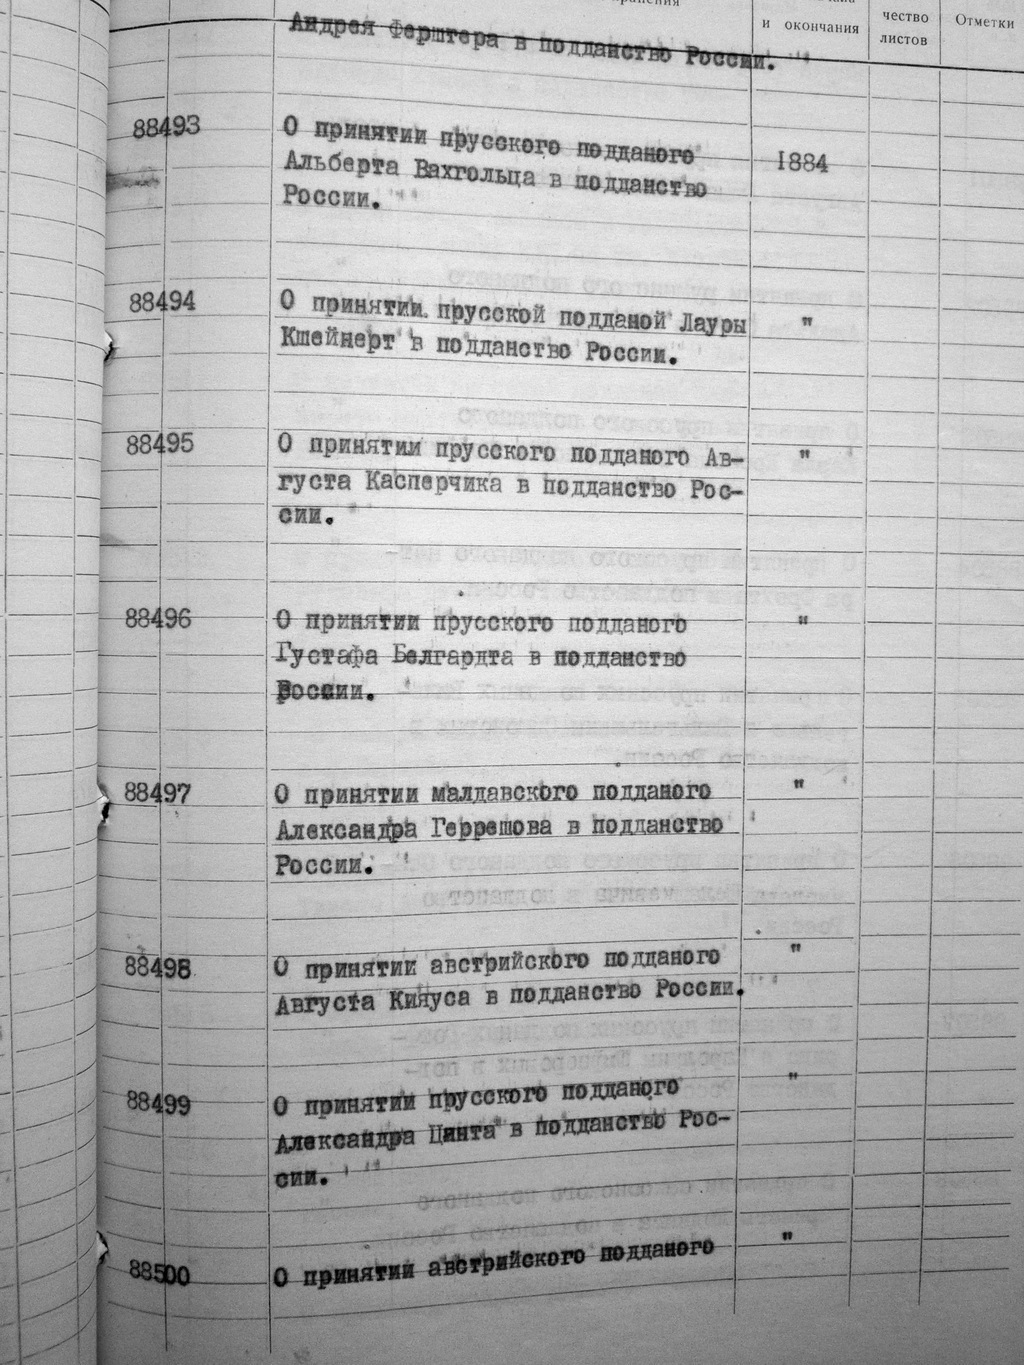 и окончания
чество
листов
Отметки
Андрея Ферштера в подданство России.
88493 О принятии прусского подданого 1884
Альберта Вахгольца в подданство
России.
88494 О принятии прусской подданой Лауры "
Кшейнерт в подданство России.
88495 О принятии прусского подданого Ав- "
густа Касперчика в подданство Рос-
сии.
88496 О принятии прусского подданого "
Густафа Белгардта в подданство
России.
88497 О принятии малдавского подданого "
Александра Геррешова в подданство
России.
88498 О принятии австрийского подданого "
Августа Кинуса в подданство России.
88499 О принятии прусского подданого "
Александра Цинта в подданство Рос-
сии.
88500 О принятии австрийского подданого "